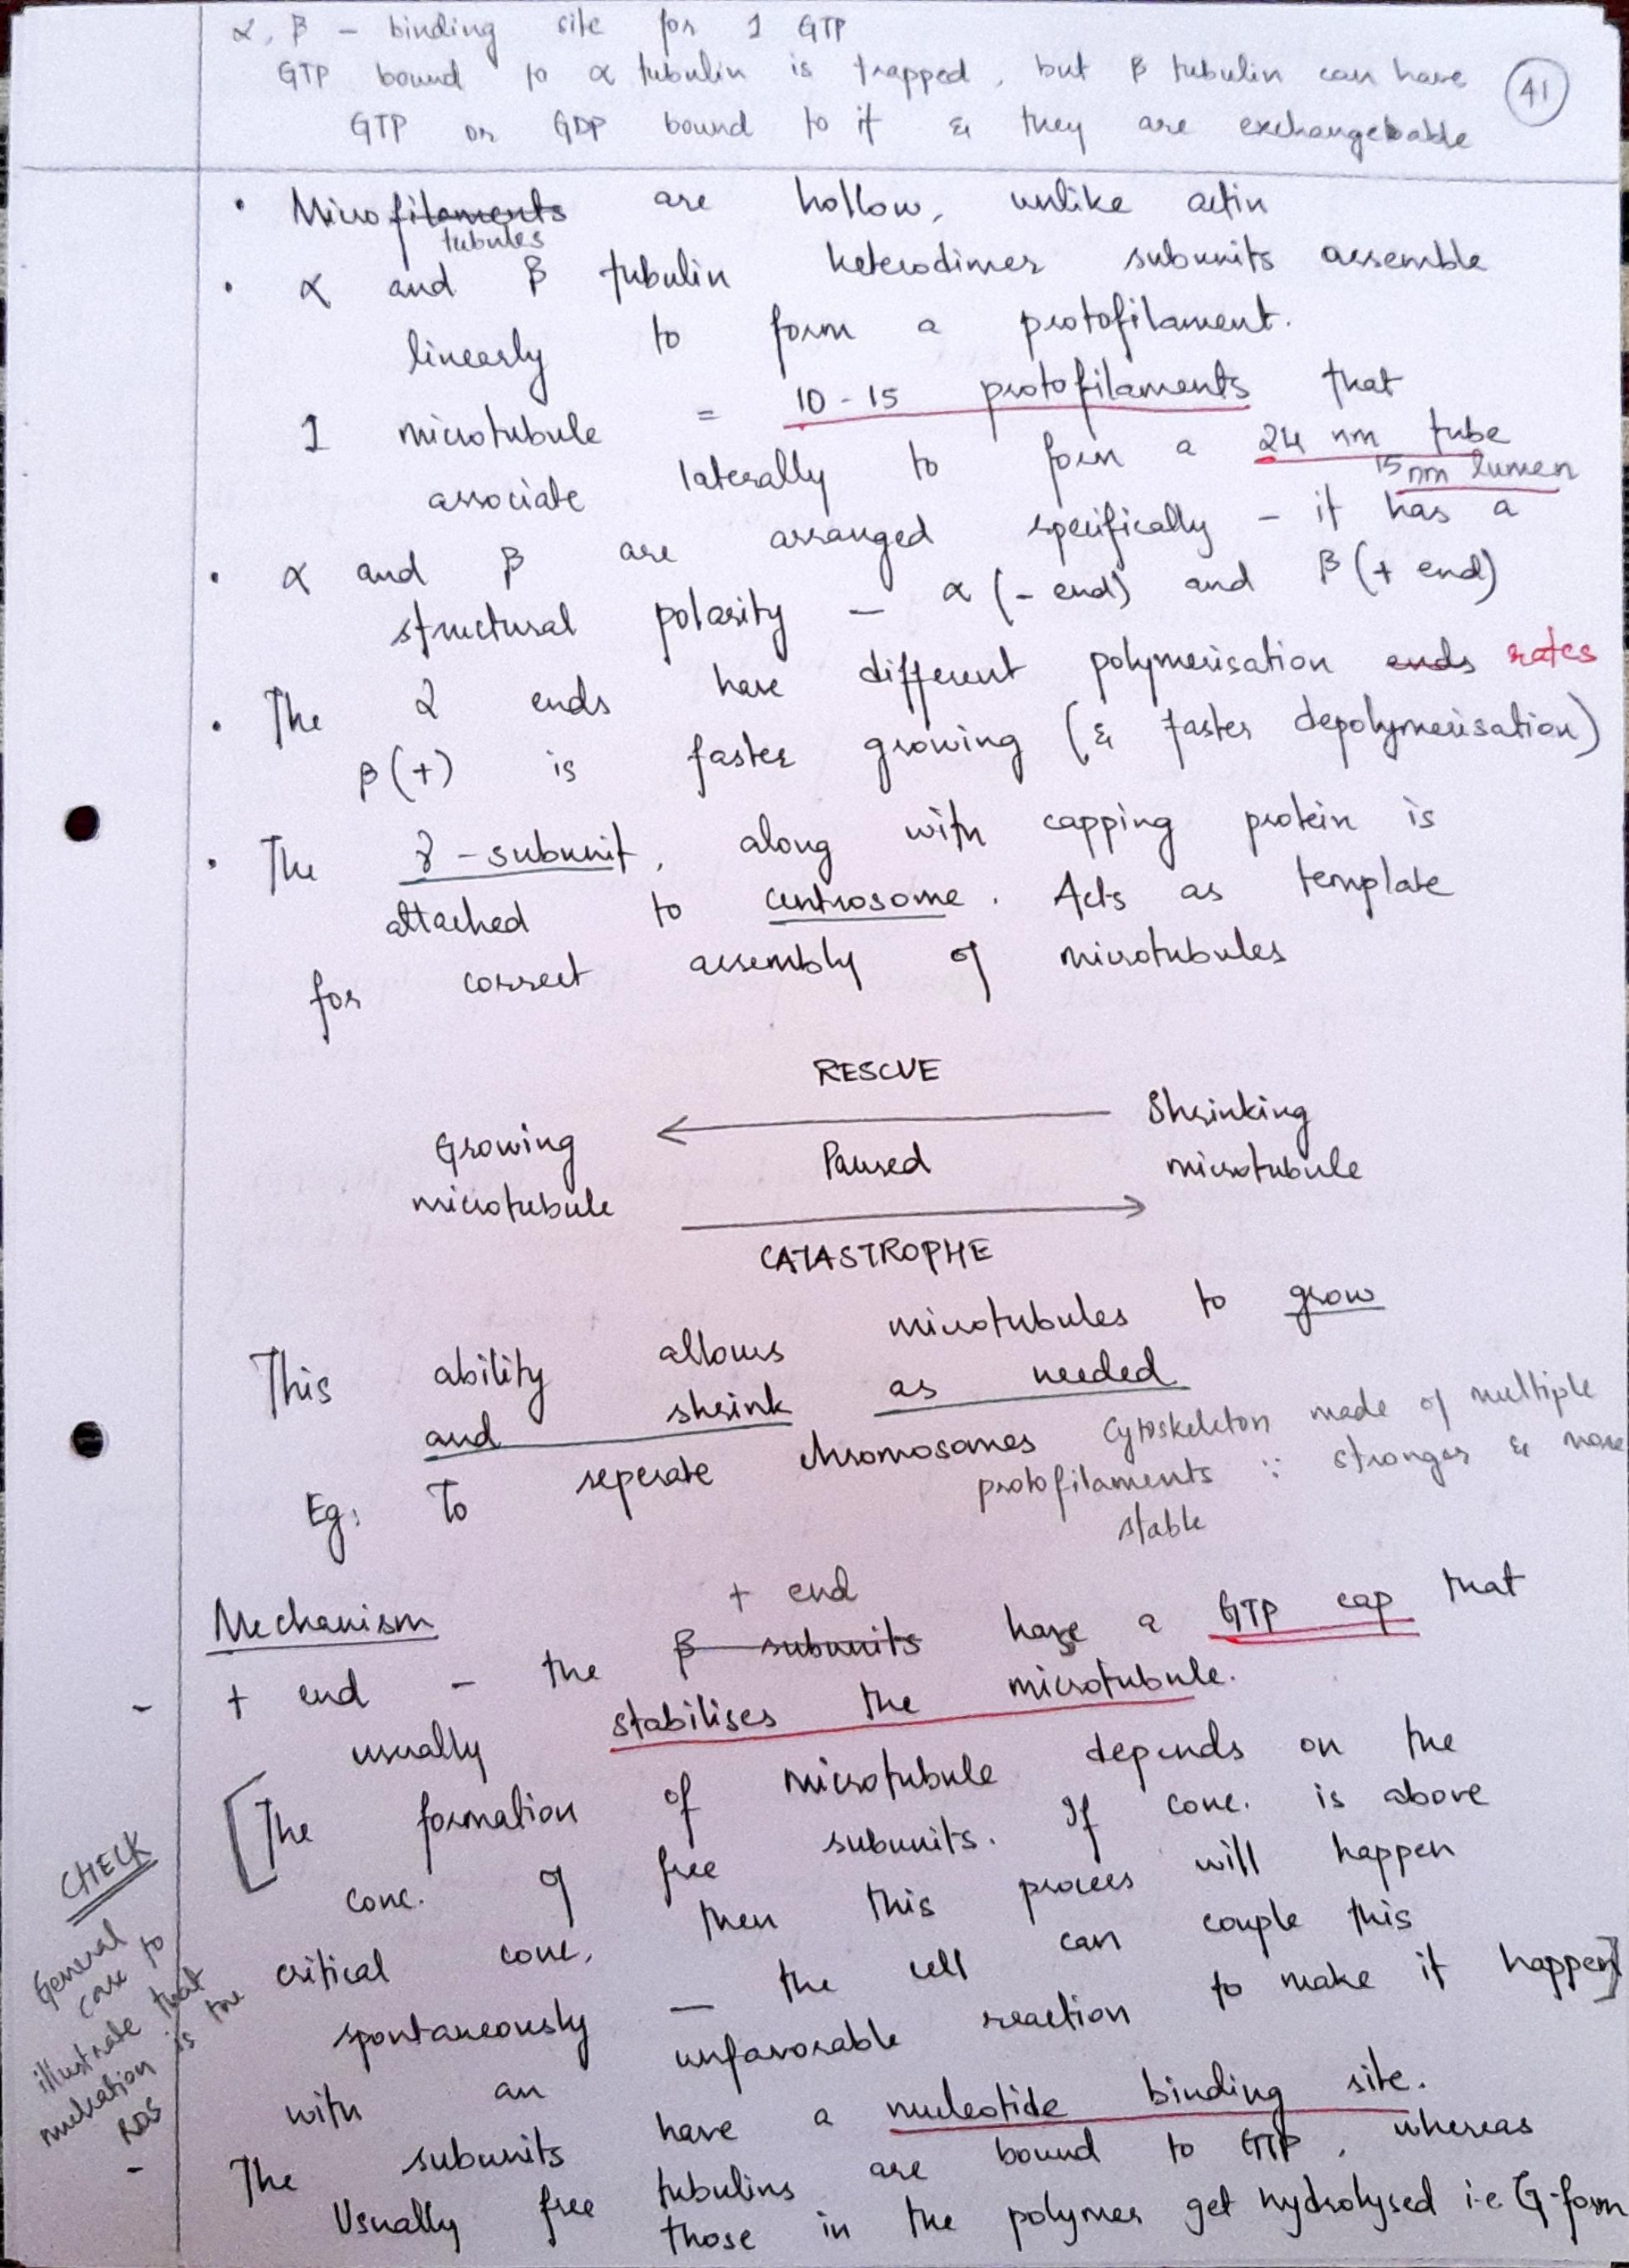 α, β - binding site for 1 GTP
GTP bound to α tubulin is trapped, but β tubulin can have
GTP or GDP bound to it & they are exchangebable
41
• Microfilaments are hollow, unlike actin
tubules
• α and β tubulin heterodimer subunits assemble
linearly to form a protofilament.
1 microtubule = 10 - 15 protofilaments that
associate laterally to form a 24 nm tube
15 nm lumen
• α and β are arranged specifically - it has a
structural polarity - α (- end) and β (+ end)
• The 2 ends have different polymerisation ends rates
β(+) is faster growing (& faster depolymerisation)
• The γ-subunit, along with capping protein is
attached to centrosome. Acts as template
for correct assembly of microtubules
RESCUE
Growing microtubule ← Shrinking microtubule
Paused
→
CATASTROPHE
This ability allows microtubules to grow
and shrink as needed
Eg: To seperate chromosomes
Cytoskeleton made of multiple
protofilaments ∵ stronger & more
stable
Mechanism
+ end
- + end - the β subunits have a GTP cap that
usually stabilises the microtubule.
[The formation of microtubule depends on the
conc. of free subunits. If conc. is above
critical conc. then this process will happen
spontaneously - the cell can couple this
with an unfavorable reaction to make it happen]
CHECK
General
case to
illustrate that
nucleation is the
RDS
- The subunits have a nucleotide binding site.
Usually free tubulins are bound to GTP, whereas
those in the polymer get hydrolysed i.e G-form